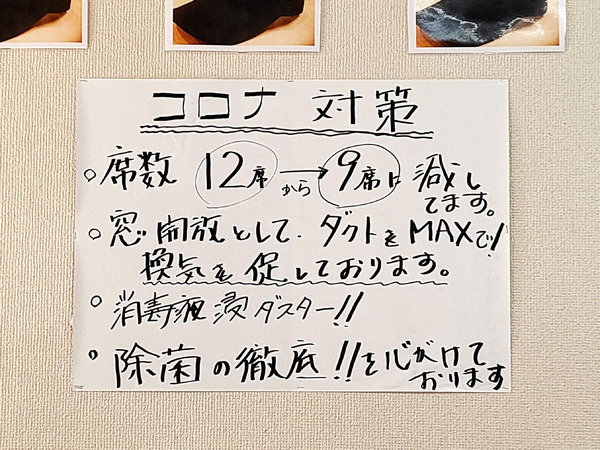 コロナ 対策
○席数 12席から→9席に減し
てます。
○窓開放として、ダクトをMAXで!
換気を促しております。
○消毒液浸ダスター!!
○除菌の徹底!!を心がけて
おります